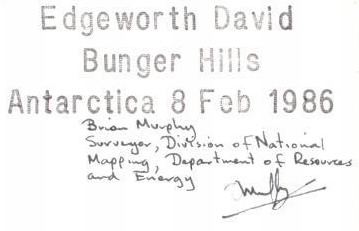 Edgeworth David
Bunger Hills
Antarctica 8 Feb 1986
Brian Murphy
Surveyor, Division of National
Mapping, Department of Resources
and Energy